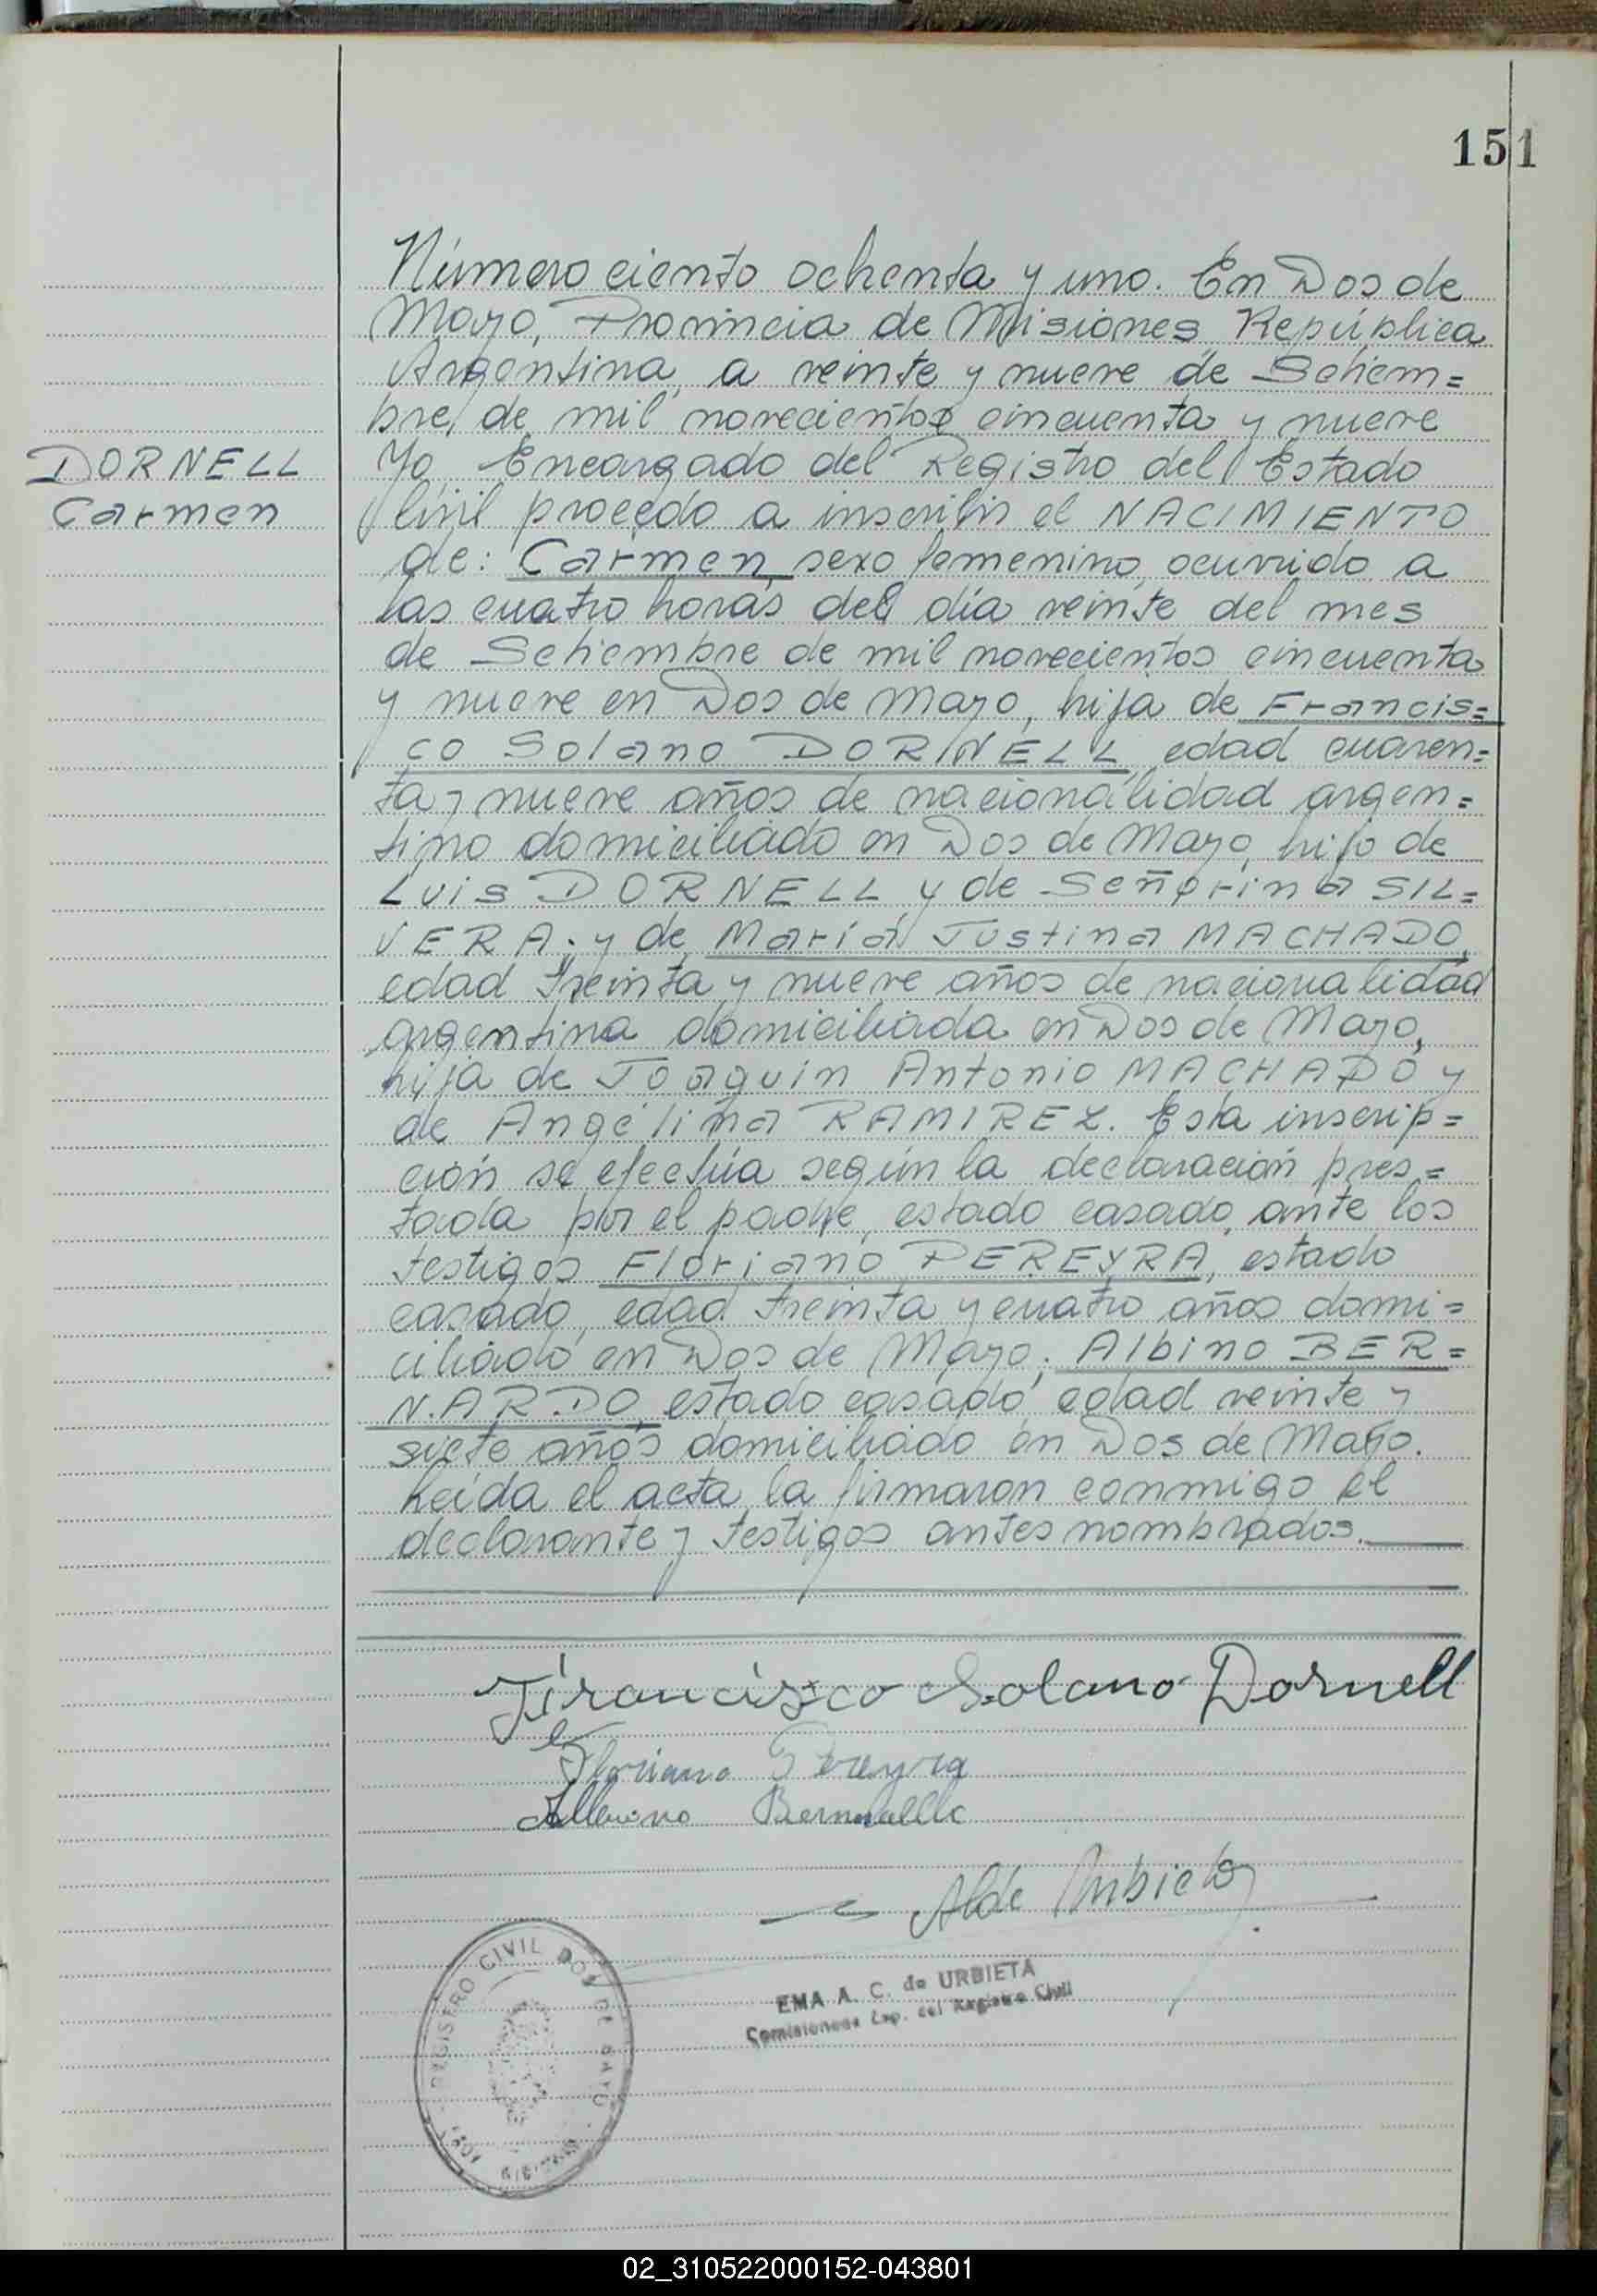 151
Número ciento ochenta y uno. En Dos de
Mayo, Provincia de Misiones República
Argentina, a veinte y nueve de Setiem=
bre, de mil novecientos cincuenta y nueve
DORNELL
Carmen
Yo, Encargado del Registro del Estado
Civil procedo a inscribir el NACIMIENTO
de: Carmen, sexo femenino, ocurrido a
las cuatro horas del día veinte del mes
de Setiembre de mil novecientos cincuenta
y nueve en Dos de Mayo, hija de Francis=
co Solano DORNELL, edad cuaren=
ta y nueve años de nacionalidad argen=
tino domiciliado en Dos de Mayo, hijo de
Luis DORNELL y de Señorina SIL=
VERA; y de María Justina MACHADO,
edad treinta y nueve años de nacionalidad
argentina domiciliada en Dos de Mayo,
hija de Joaquín Antonio MACHADO y
de Angélina RAMIREZ. Esta inscrip=
ción se efectúa según la declaración pres=
tada por el padre, estado casado, ante los
testigos Floriano PEREYRA, estado
casado, edad treinta y cuatro años domi=
ciliado en Dos de Mayo; Albino BER=
NARDO, estado casado, edad veinte y
siete años domiciliado en Dos de Mayo.
Leída el acta, la firmaron conmigo el
declarante y testigos antes nombrados.
Francisco Solano Dornell
Floriano Pereyra
REGISTRO CIVIL DOS DE MAYO
EMA A. C. de URBIETA
del Registro Civil
02_310522000152-043801